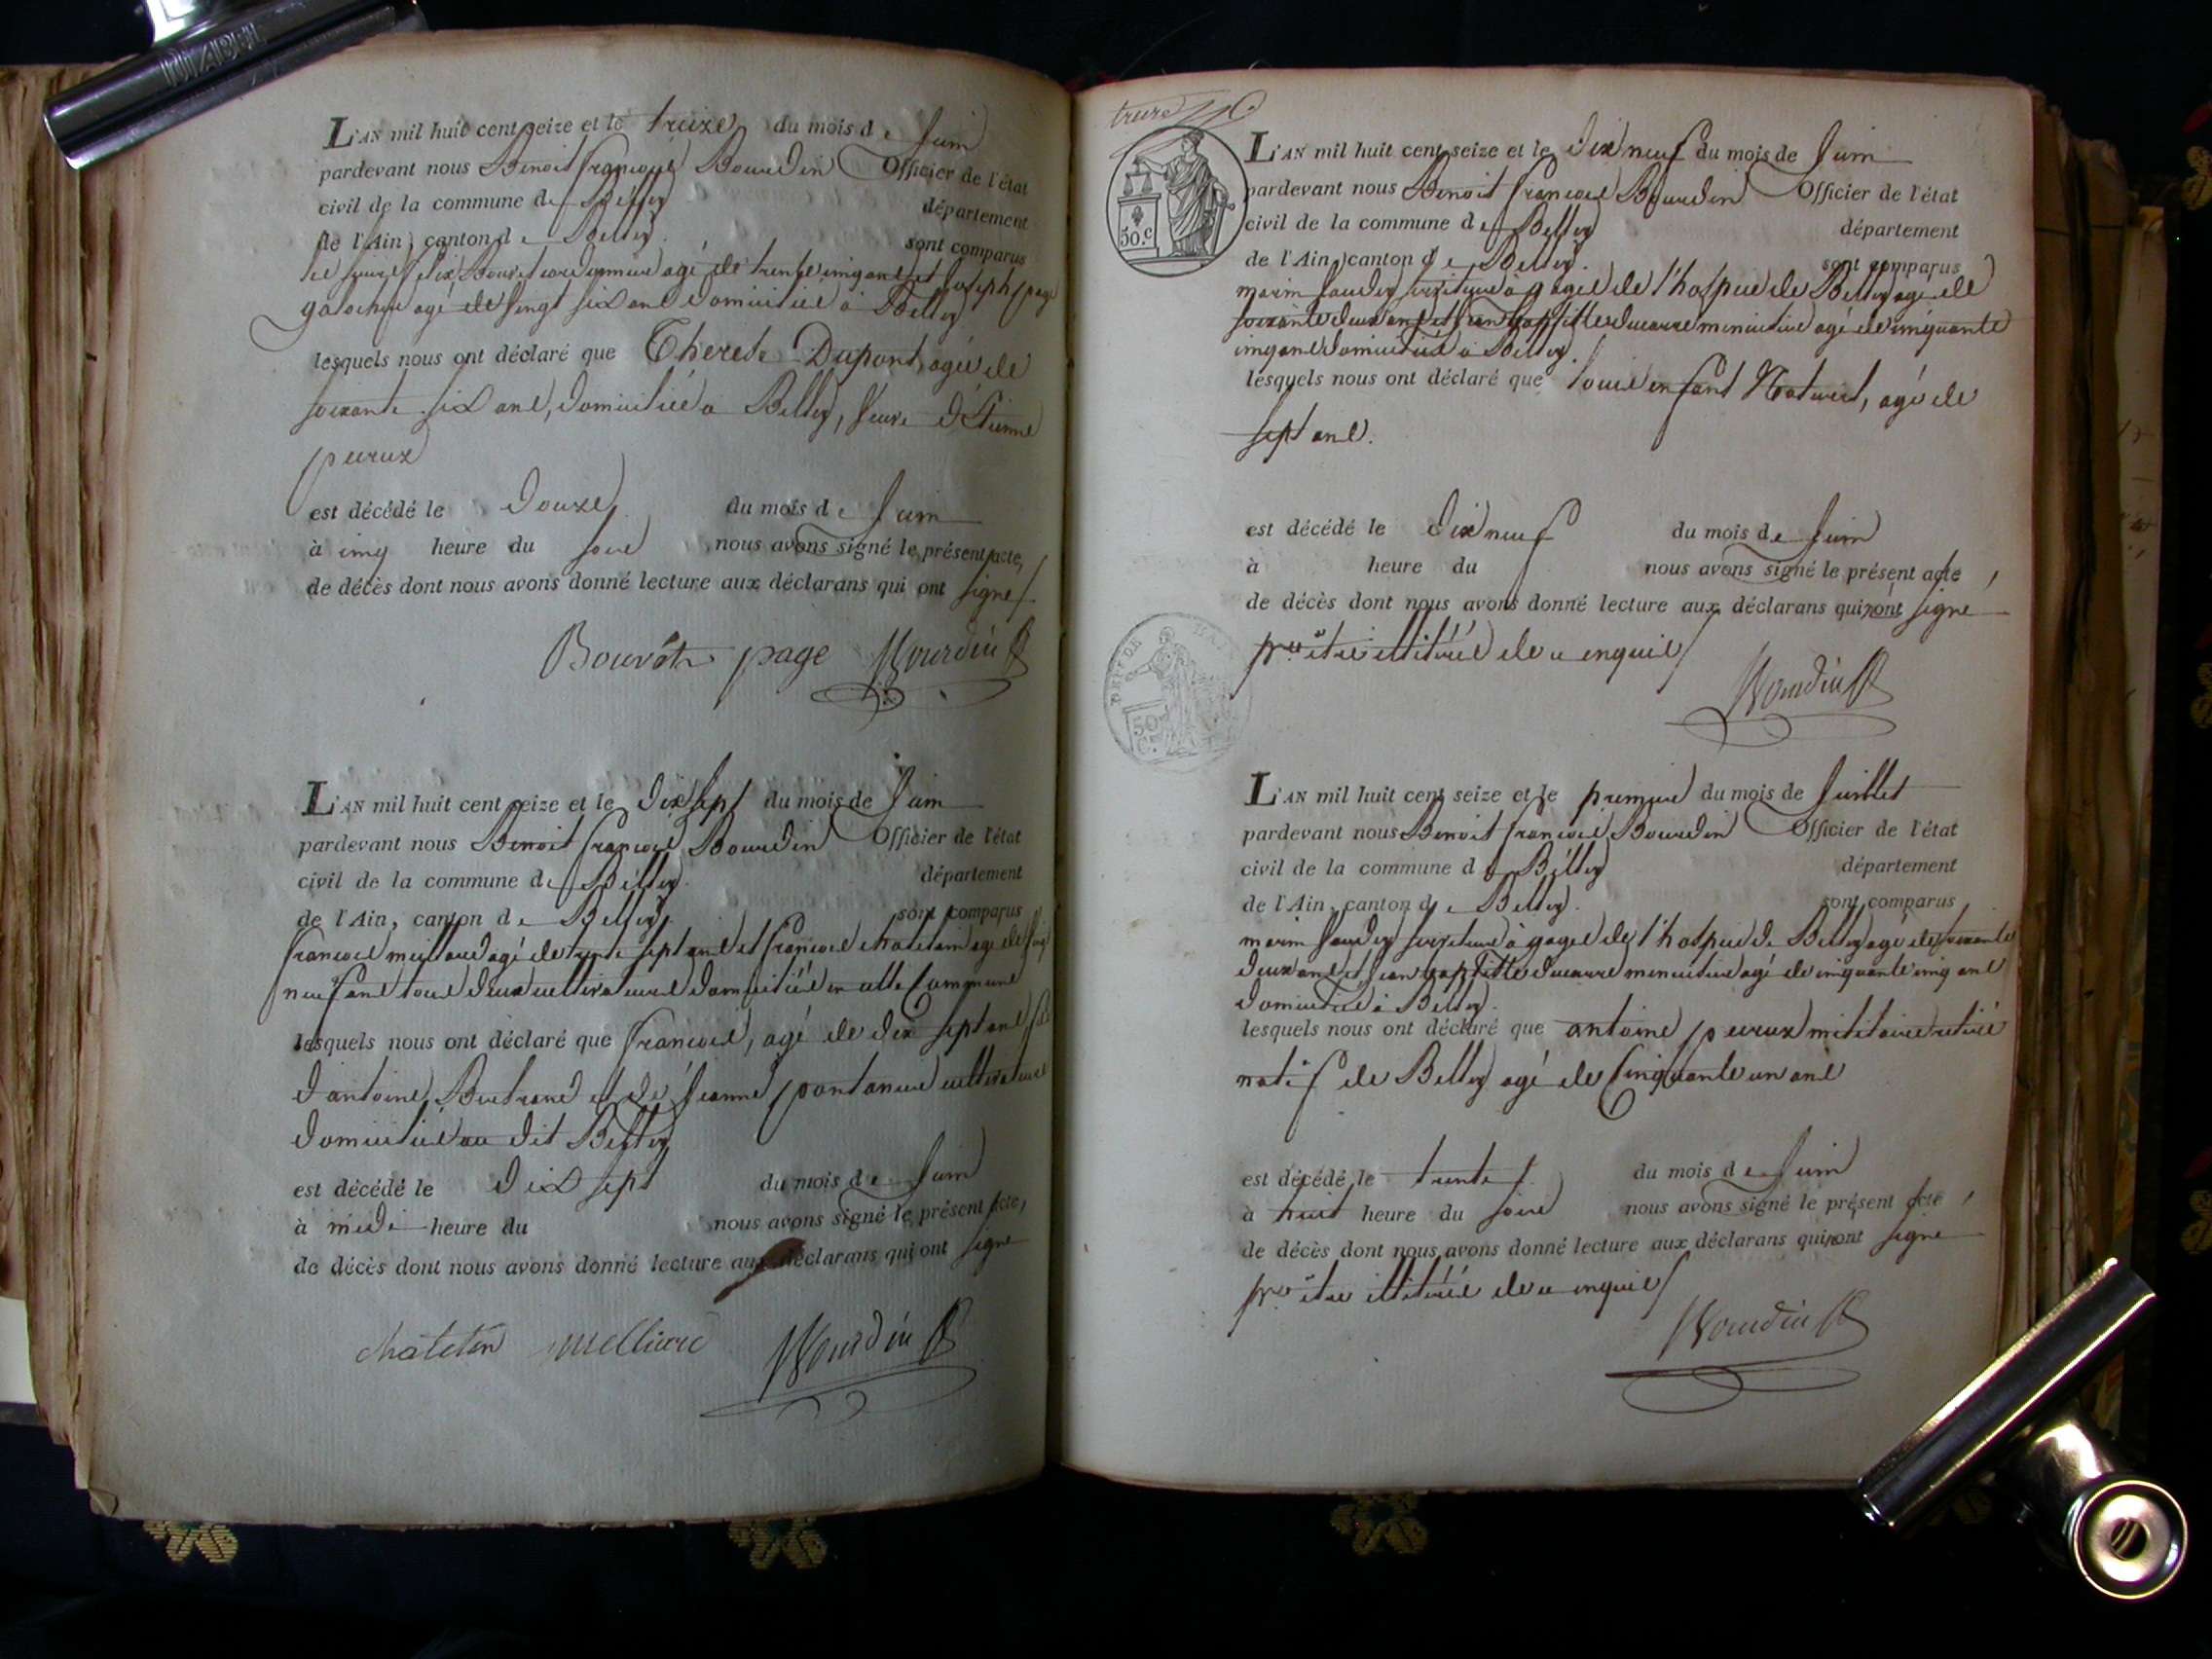 L'AN mil huit cent seize et le treize du mois de Juin
pardevant nous Benoit françois Bourdin Officier de l'état
civil de la commune de Belley département
de l'Ain, canton de Belley sont comparus
Bouvet cordonnier agé de trente cinq ans et Joseph page
galochier agé de vingt six ans domiciliés à Belley
lesquels nous ont déclaré que Therese Dupont, agée de
soixante six ans, domiciliée à Belley, veuve d'Etienne
peroux
est décédé le douze du mois de Juin
à cinq heure du soir nous avons signé le présent acte,
de décès dont nous avons donné lecture aux déclarans qui ont signé
Bouvet page Bourdin
L'AN mil huit cent seize et le dix sept du mois de Juin
pardevant nous Benoit françois Bourdin Officier de l'état
civil de la commune de Belley département
de l'Ain, canton de Belley sont comparus
françois agé de trente sept ans et françois chatelain agé de vingt
neuf ans tous deux cultivateurs domiciliés en cette Commune
lesquels nous ont déclaré que françois, agé de dix sept ans fils
d'antoine Bertrand et de Jeanne cultivateurs
domiciliés au dit Belley
est décédé le dix sept du mois de Juin
à midi heure du nous avons signé le présent acte,
de décès dont nous avons donné lecture aux déclarans qui ont signé
Bourdin
treize
50.c
L'AN mil huit cent seize et le dix neuf du mois de Juin
pardevant nous Benoit françois Bourdin Officier de l'état
civil de la commune de Belley département
de l'Ain, canton de Belley sont comparus
marin serviteur à gages de l'hospice de Belley agé de
soixante deux ans et Jean baptiste ducarre menuisier agé de cinquante
cinq ans domiciliés à Belley.
lesquels nous ont déclaré que louis enfant Naturel, agé de
sept ans.
est décédé le dix neuf du mois de Juin
à heure du nous avons signé le présent acte,
de décès dont nous avons donné lecture aux déclarans qui n'ont signé
pr. être illitérés de ce enquis
Bourdin
50 C.
L'AN mil huit cent seize et le premier du mois de Juillet
pardevant nous Benoit françois Bourdin Officier de l'état
civil de la commune de Belley département
de l'Ain, canton de Belley. sont comparus
marin serviteur à gages de l'hospice de Belley agé de soixante
deux ans et Jean baptiste ducarre menuisier agé de cinquante cinq ans
domiciliés à Belley.
lesquels nous ont déclaré que antoine peroux militaire retiré
natif de Belley agé de Cinquante un ans
est décédé le trente du mois de Juin
à huit heure du soir nous avons signé le présent acte,
de décès dont nous avons donné lecture aux déclarans qui n'ont signé
pr. être illitérés de ce enquis
Bourdin